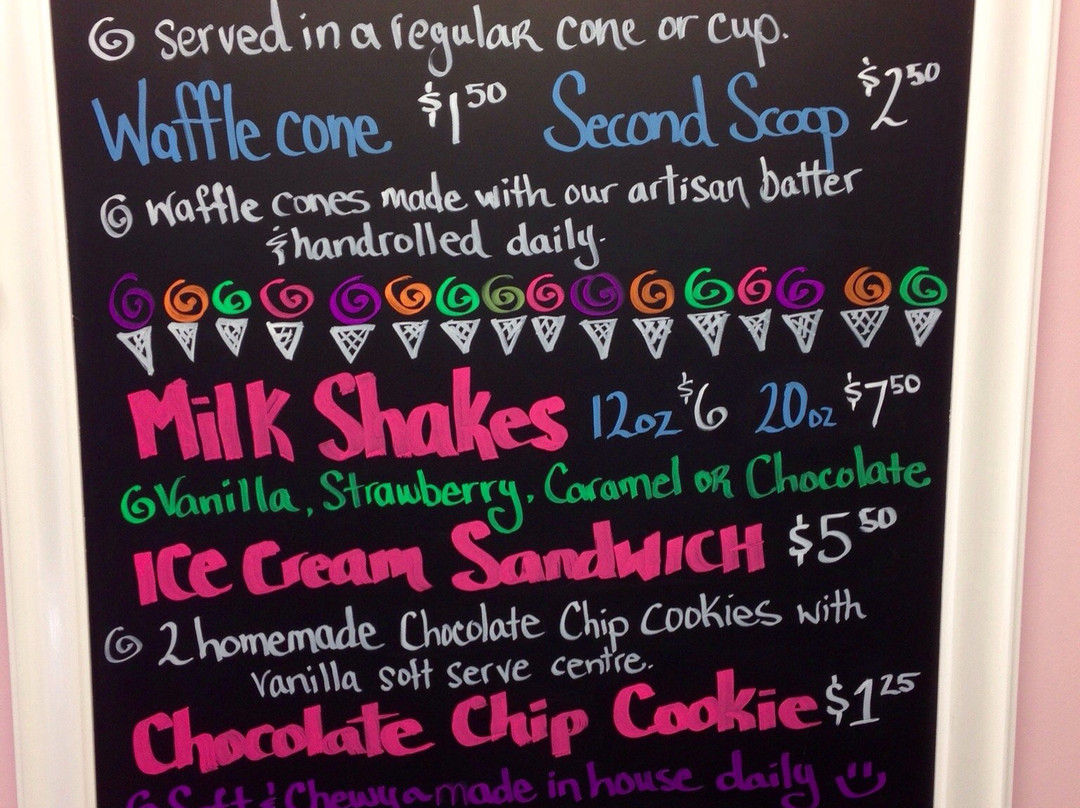 Served in a regular cone or cup.
Waffle cone $1.50 Second Scoop $2.50
Waffle cones made with our artisan batter
& handrolled daily.
Milk Shakes 12oz $6 20oz $7.50
Vanilla, Strawberry, Caramel or Chocolate
Ice Cream Sandwich $5.50
2 homemade Chocolate Chip Cookies with
Vanilla soft serve centre.
Chocolate Chip Cookie $1.25
Soft & Chewy made in house daily